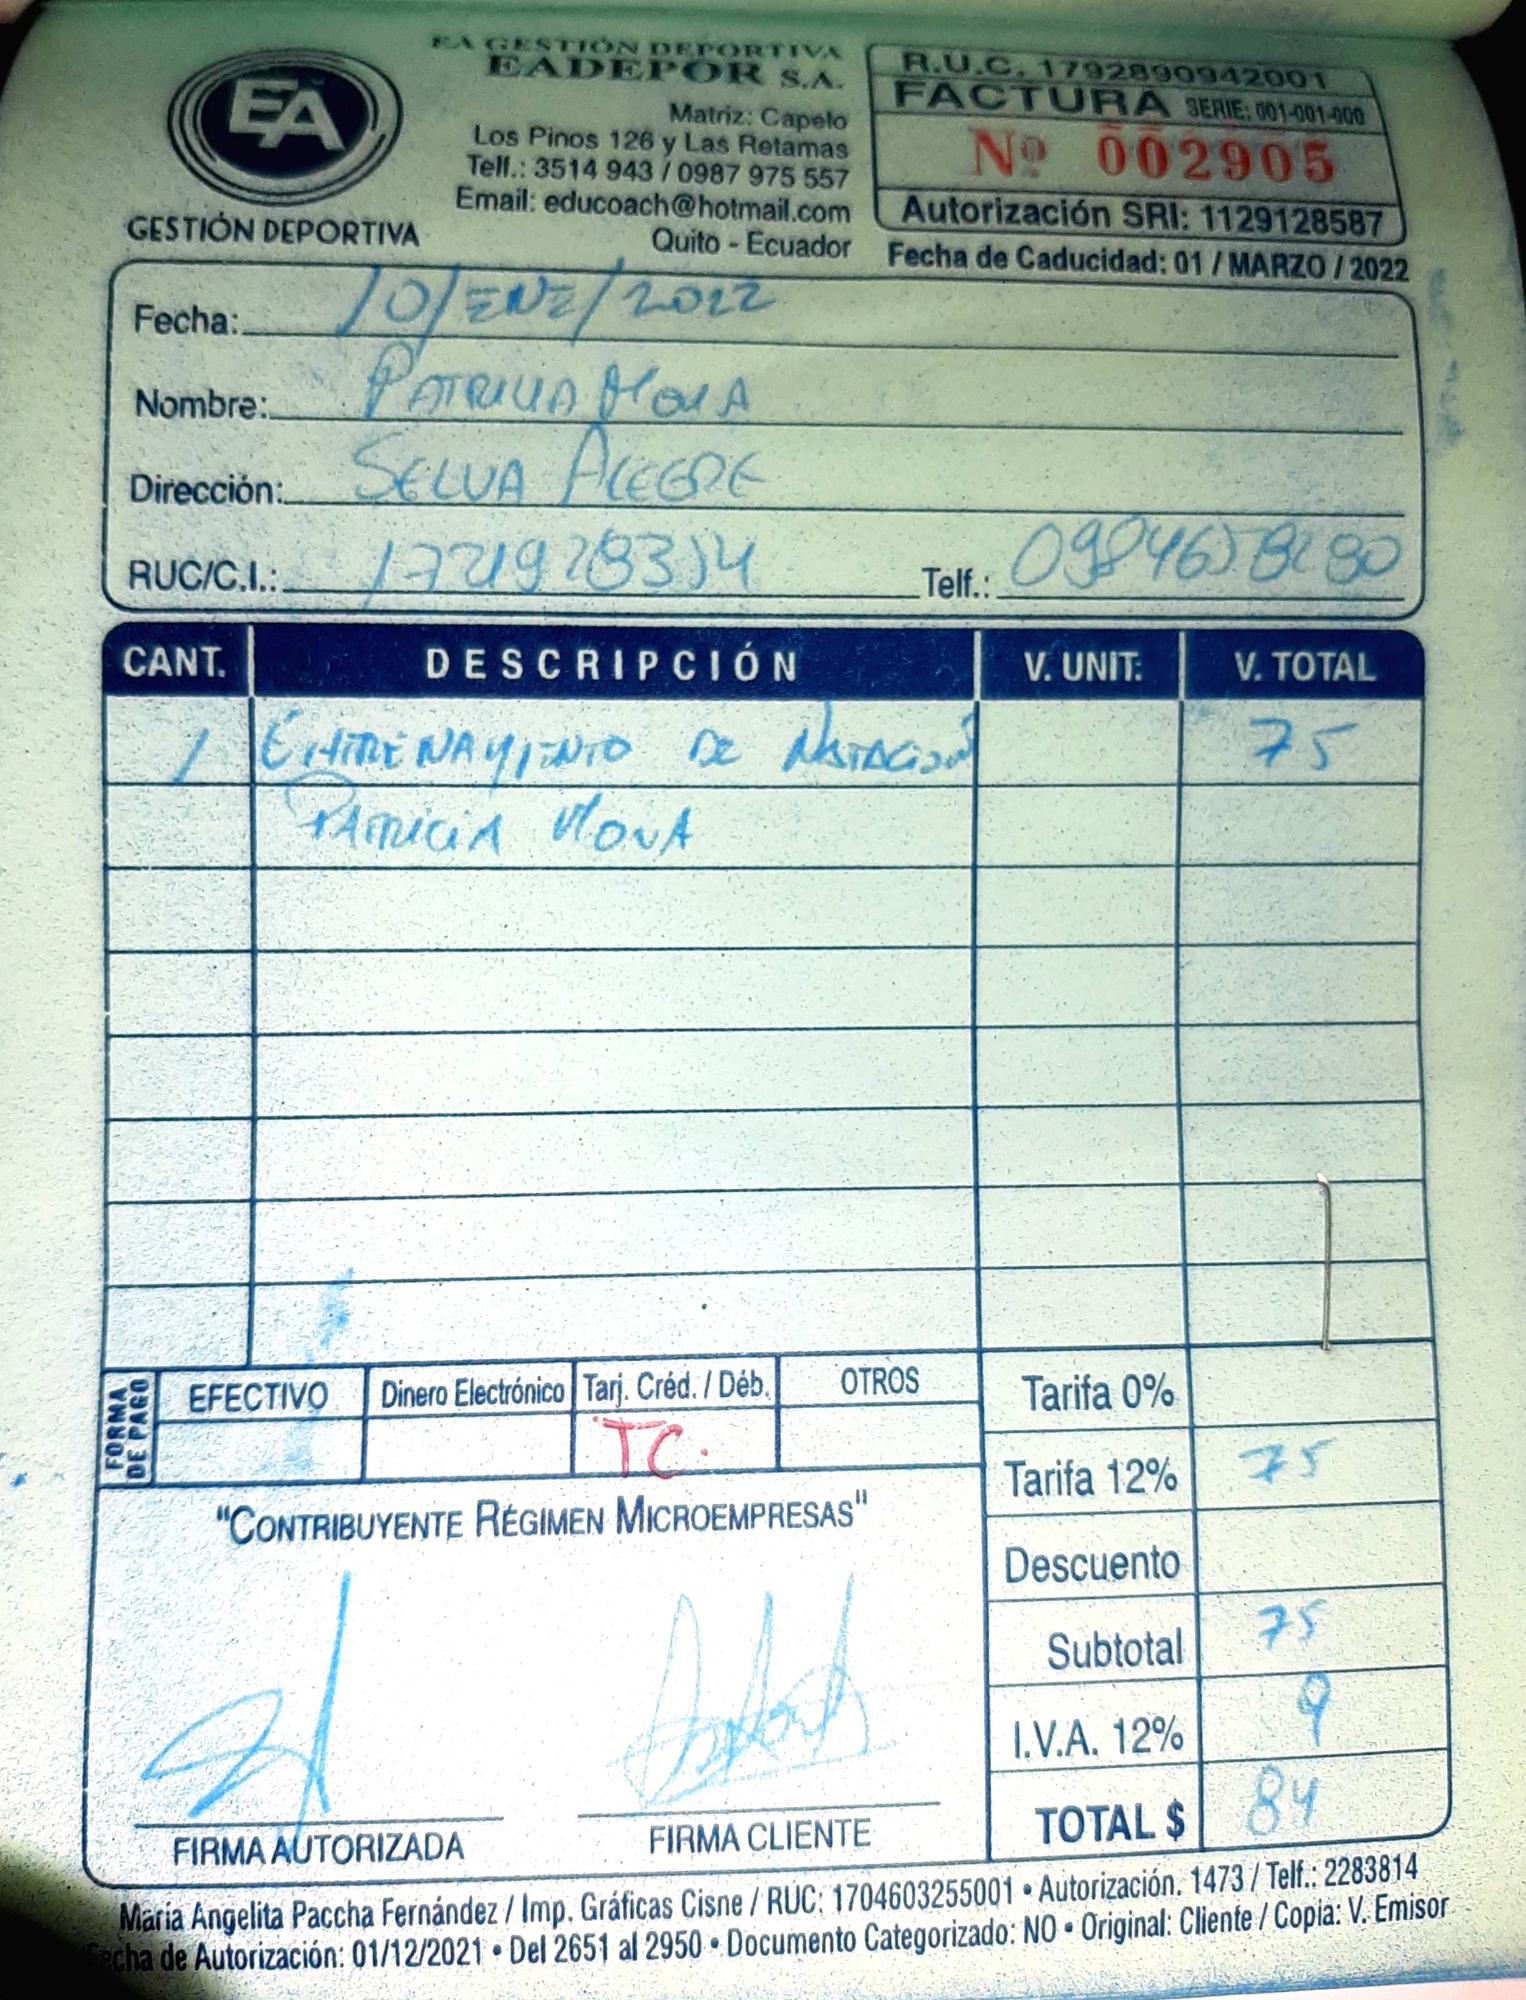 EA
GESTIÓN DEPORTIVA
EA GESTIÓN DEPORTIVA
EADEPOR S.A.
Matriz: Capelo
Los Pinos 126 y Las Retamas
Telf.: 3514 943 / 0987 975 557
Email: educoach@hotmail.com
Quito - Ecuador
R.U.C. 1792890942001
FACTURA SERIE: 001-001-000
Nº 002905
Autorización SRI: 1129128587
Fecha de Caducidad: 01 / MARZO / 2022
Fecha: 10/ENE/2022
Nombre: PATRICIA
Dirección: SELVA ALEGRE
RUC/C.I.:
Telf.:
CANT. DESCRIPCIÓN V. UNIT. V. TOTAL
1 ENTRENAMIENTO DE NATACION 75
PATRICIA
FORMA DE PAGO
EFECTIVO Dinero Electrónico Tarj. Créd. / Déb. OTROS
TC.
Tarifa 0%
Tarifa 12% 75
Descuento
Subtotal 75
I.V.A. 12% 9
TOTAL $ 84
"CONTRIBUYENTE RÉGIMEN MICROEMPRESAS"
FIRMA AUTORIZADA FIRMA CLIENTE
María Angelita Paccha Fernández / Imp. Gráficas Cisne / RUC: 1704603255001 • Autorización. 1473 / Telf.: 2283814
Fecha de Autorización: 01/12/2021 • Del 2651 al 2950 • Documento Categorizado: NO • Original: Cliente / Copia: V. Emisor